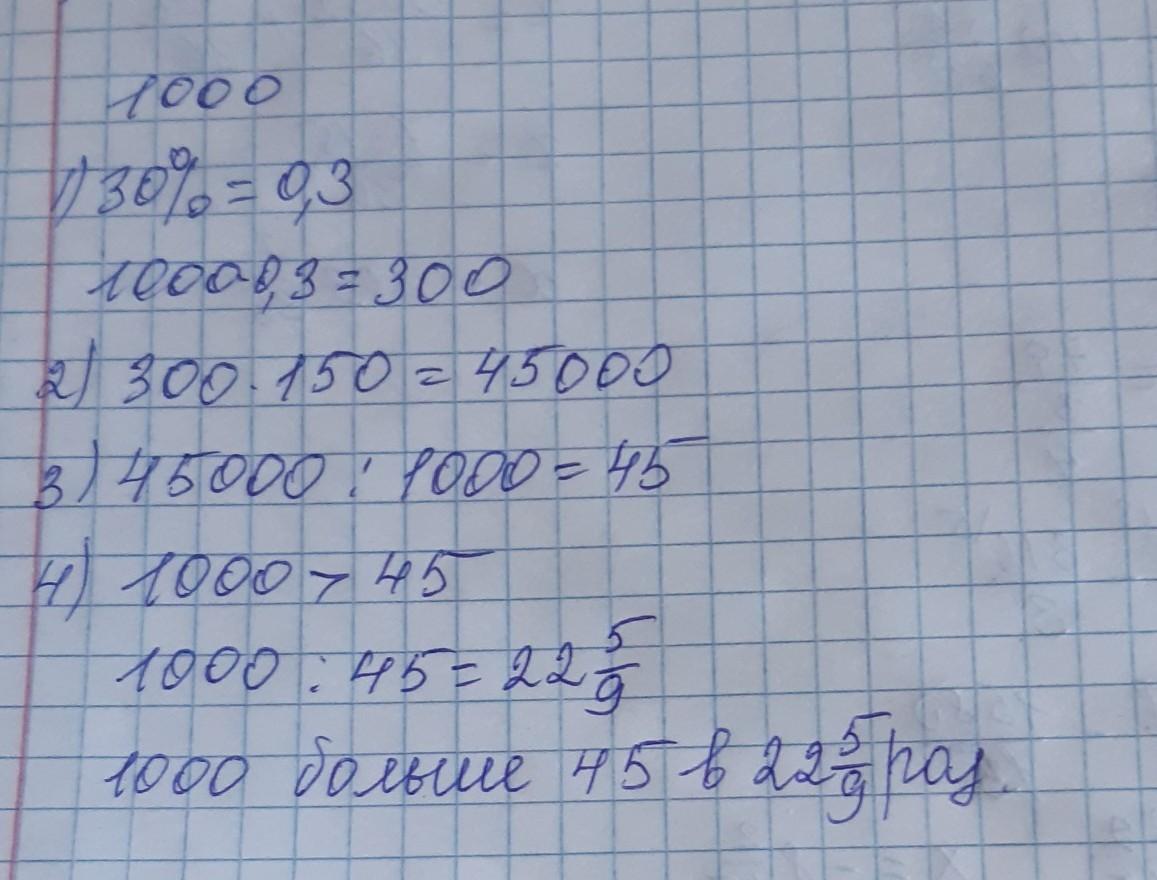 1000
1) 30% = 0,3
1000·0,3 = 300
2) 300 · 150 = 45000
3) 45000 : 1000 = 45
4) 1000 > 45
1000 : 45 = 22 5/9
1000 больше 45 в 22 5/9 раз.